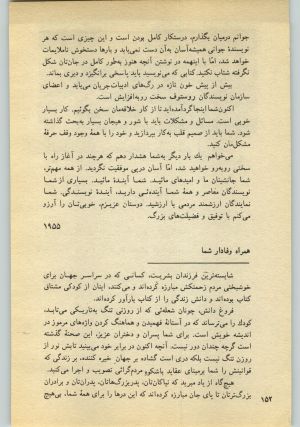 جوانم درمیان بگذارم، درستکار کامل بودن است و این چیزی است که هر
نویسندهٔ جوانی همیشه‌آسان به‌آن دست نمی‌یابد و بارها دستخوش ناملایمات
خواهد شد، امّا با اینهمه در نوشتن آنچه هنوز به‌طور کامل در جان‌تان شکل
نگرفته شتاب نکنید. کتابی که می‌نویسید باید پاسخی برانگیزد و دیری بماند.
بیش از پیش خون تازه در رگ‌های ادبیات‌جریان می‌یابد و اعضای
سازمان نویسندگان روستوف سخت روبه‌افزایش است.
اکنون‌شما اینجاگردآمده‌اید تا از کار خلاقه‌مان سخن بگوئیم. کار بسیار
خوبی است. مسائل و مشکلات باید با شور و هیجان بسیار به‌بحث گذاشته
شود. شما باید از صمیم قلب به‌کار بپردازید و خود را با همهٔ وجود وقف حرفهٔ
مشکل‌مان کنید.
می‌خواهم یك بار دیگر به‌شما هشدار دهم که هرچند در آغاز راه با
سختی روبه‌رو خواهید شد، امّا آسان درپی موفقیت نگردید. از همه مهم‌تر،
شما جانشینان ما و امیدهای مائید. شما آیندهٔ مائید. بسیاری از شما
نویسندگان معاصر و همهٔ شما آینده‌ئی دارید، آیندهٔ نویسندگی. شما
نمایندگان ارزشمند مردمی با ارزشید. دوستان عزیزم، خوبی‌تان را آرزو
می‌کنم با توفیق و فضیلت‌های بزرگ.
۱۹۵۵
همراه وفادار شما
شایسته‌ترین فرزندان بشریت، کسانی که در سراسر جهان برای
خوشبختی مردم زحمتکش مبارزه کرده‌اند و می‌کنند، اینان از کودکی مشتاق
کتاب بوده‌اند و دانش زندگی را از کتاب بارآور کرده‌اند.
فروغ دانش، چونان شعله‌ئی که از روزنی تنگ به‌تاریکی می‌تابد،
کودك را می‌ترساند که در آستانهٔ فهمیدن و هماهنگ کردن واژه‌های مرموز در
اندیشه خویش است. برای شما پسران و دختران عزیز، این صحنهٔ گذشته
است گرچه چندان دور نیست. آنچه اکنون در برابر خود می‌بینید تابش نور از
روزن تنگ نیست بلکه دری است گشاده بر جهان خیره کننده، بر زندگی که
قوانینش را شما برمبنای عقاید باشکوه مردم‌گرائی تصویب و اجرا می‌کنید.
هیچ‌گاه از یاد مبرید که نیاکان‌تان، پدربزرگ‌هاتان، پدران‌تان و برادران
بزرگ‌ترتان تا پای جان مبارزه کرده‌اند که این درها را برای همهٔ شما، بی‌هیچ
۱۵۲